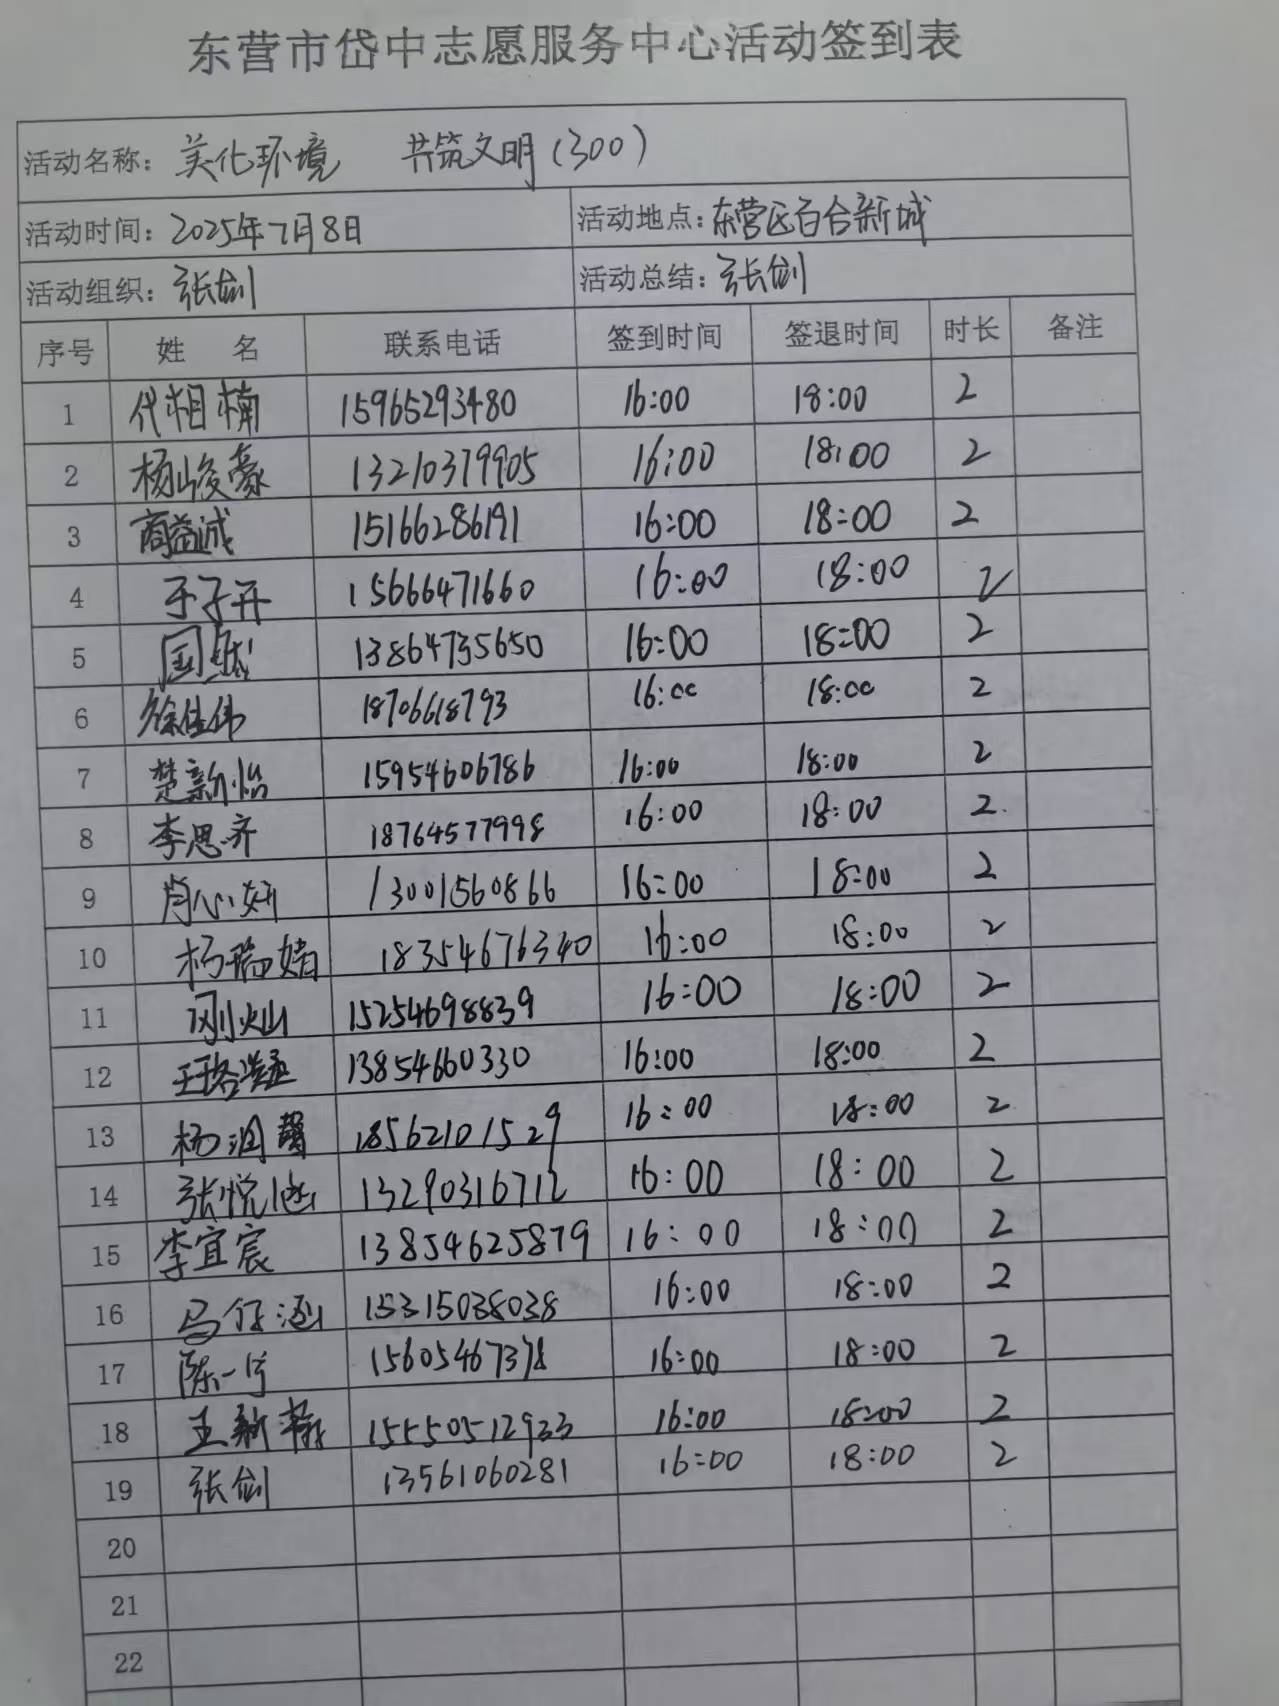 东营市岱中志愿服务中心活动签到表
活动名称：美化环境 共筑文明（300）
活动时间：2025年7月8日 活动地点：东营区百合新城
活动组织：张剑 活动总结：张剑
序号 姓 名 联系电话 签到时间 签退时间 时长 备注
1 代相楠 15965293480 16:00 18:00 2
2 杨峻豪 13210379905 16:00 18:00 2
3 商益诚 15166286191 16:00 18:00 2
4 于子开 15666471660 16:00 18:00 2
5 国 13864735650 16:00 18:00 2
6 徐佳伟 18706618793 16:00 18:00 2
7 楚新怡 15954606786 16:00 18:00 2
8 李思齐 18764577998 16:00 18:00 2
9 肖心妍 13001560866 16:00 18:00 2
10 杨瑞婧 18354676340 16:00 18:00 2
11 刚灿 15254698839 16:00 18:00 2
12 王 13854660330 16:00 18:00 2
13 杨润馨 18562101529 16:00 18:00 2
14 张悦涵 13290316712 16:00 18:00 2
15 李宜宸 13854625879 16:00 18:00 2
16 马仔涵 15315038038 16:00 18:00 2
17 陈一宁 16:00 18:00 2
18 王新 15550512933 16:00 18:00 2
19 张剑 13561060281 16:00 18:00 2
20
21
22